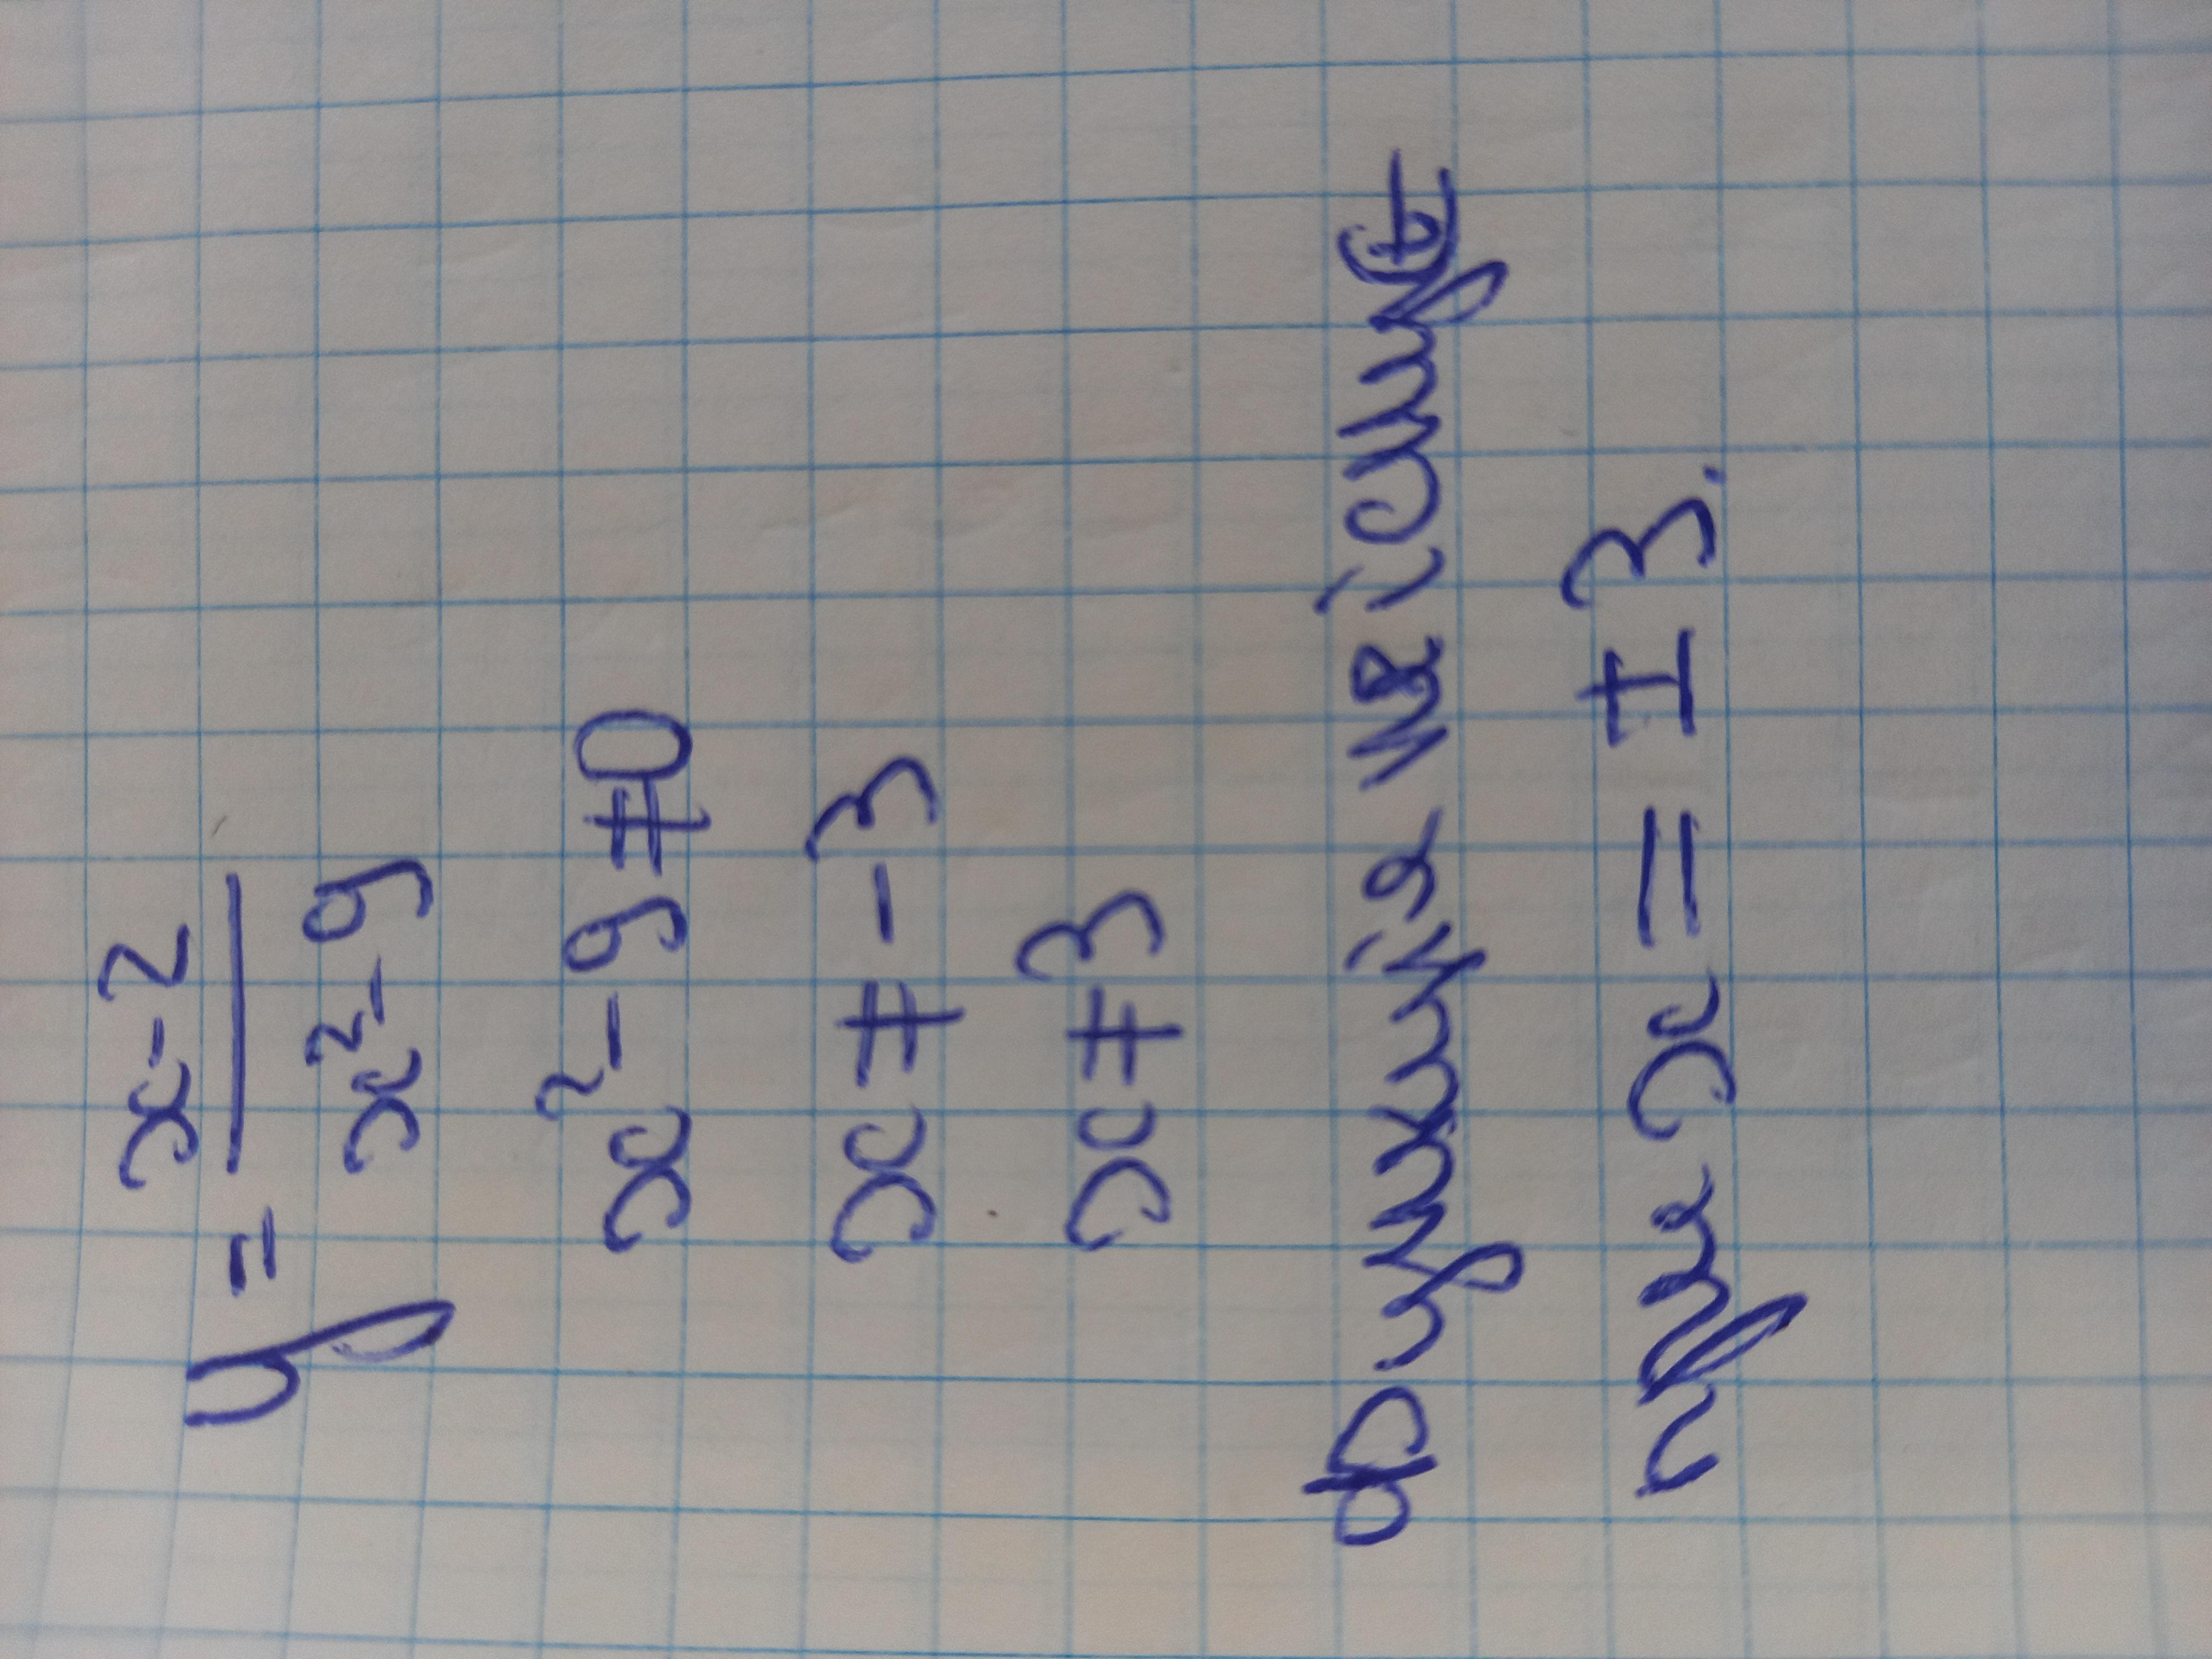 y = x-2 / x²-9
x² - 9 ≠ 0
x ≠ -3
x ≠ 3
функція не існує
при x = ± 3.